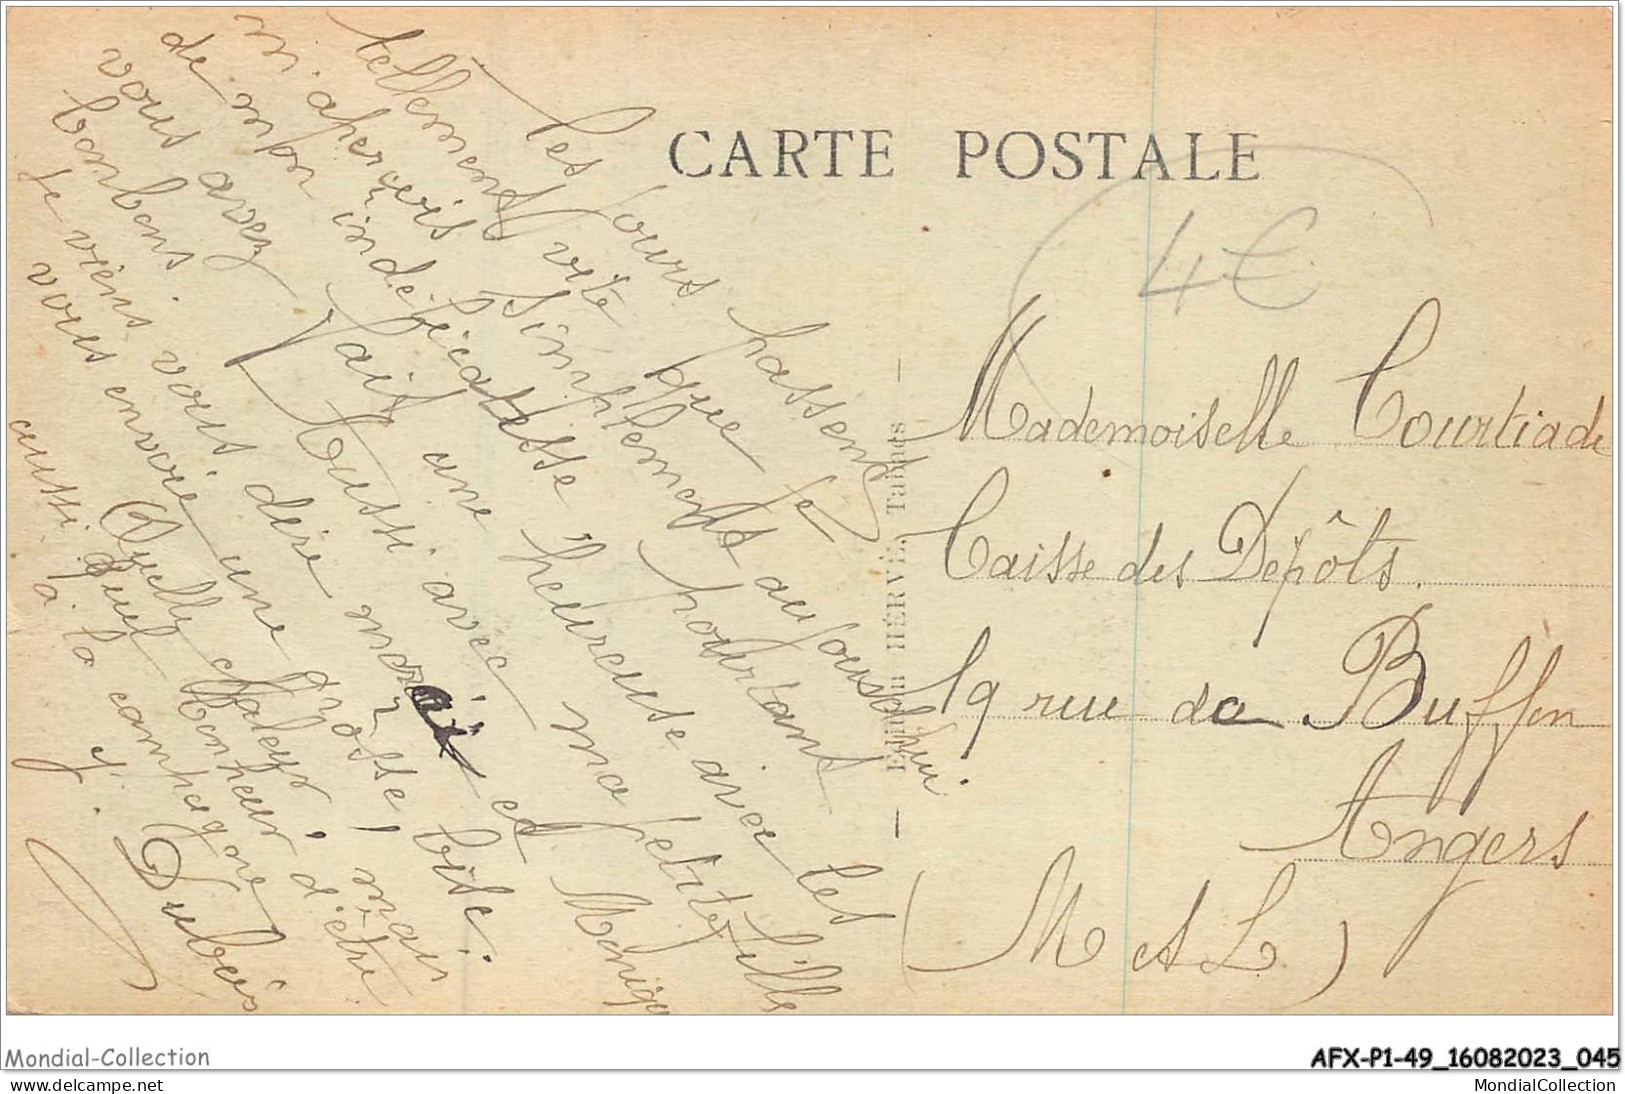 CARTE POSTALE
4€
Les jours passent
tellement vite que je
m'aperçois simplement aujourd'hui
de mon indélicatesse pourtant
vous avez fait une heureuse avec les
bonbons Aussi avec ma petite fille
je viens vous dire merci et Moniqu
vous envoie une grosse bise.
Quelle chaleur! mais
aussi quel bonheur d'être
à la campagne
J. Dubois
Edition HERVÉ, Tabacs
Mademoiselle Courtiade
Caisse des Dépôts.
19 rue de Buffon
Angers
(M et L)
Mondial-Collection
AFX-P1-49_16082023_045
www.delcampe.net
MondialCollection